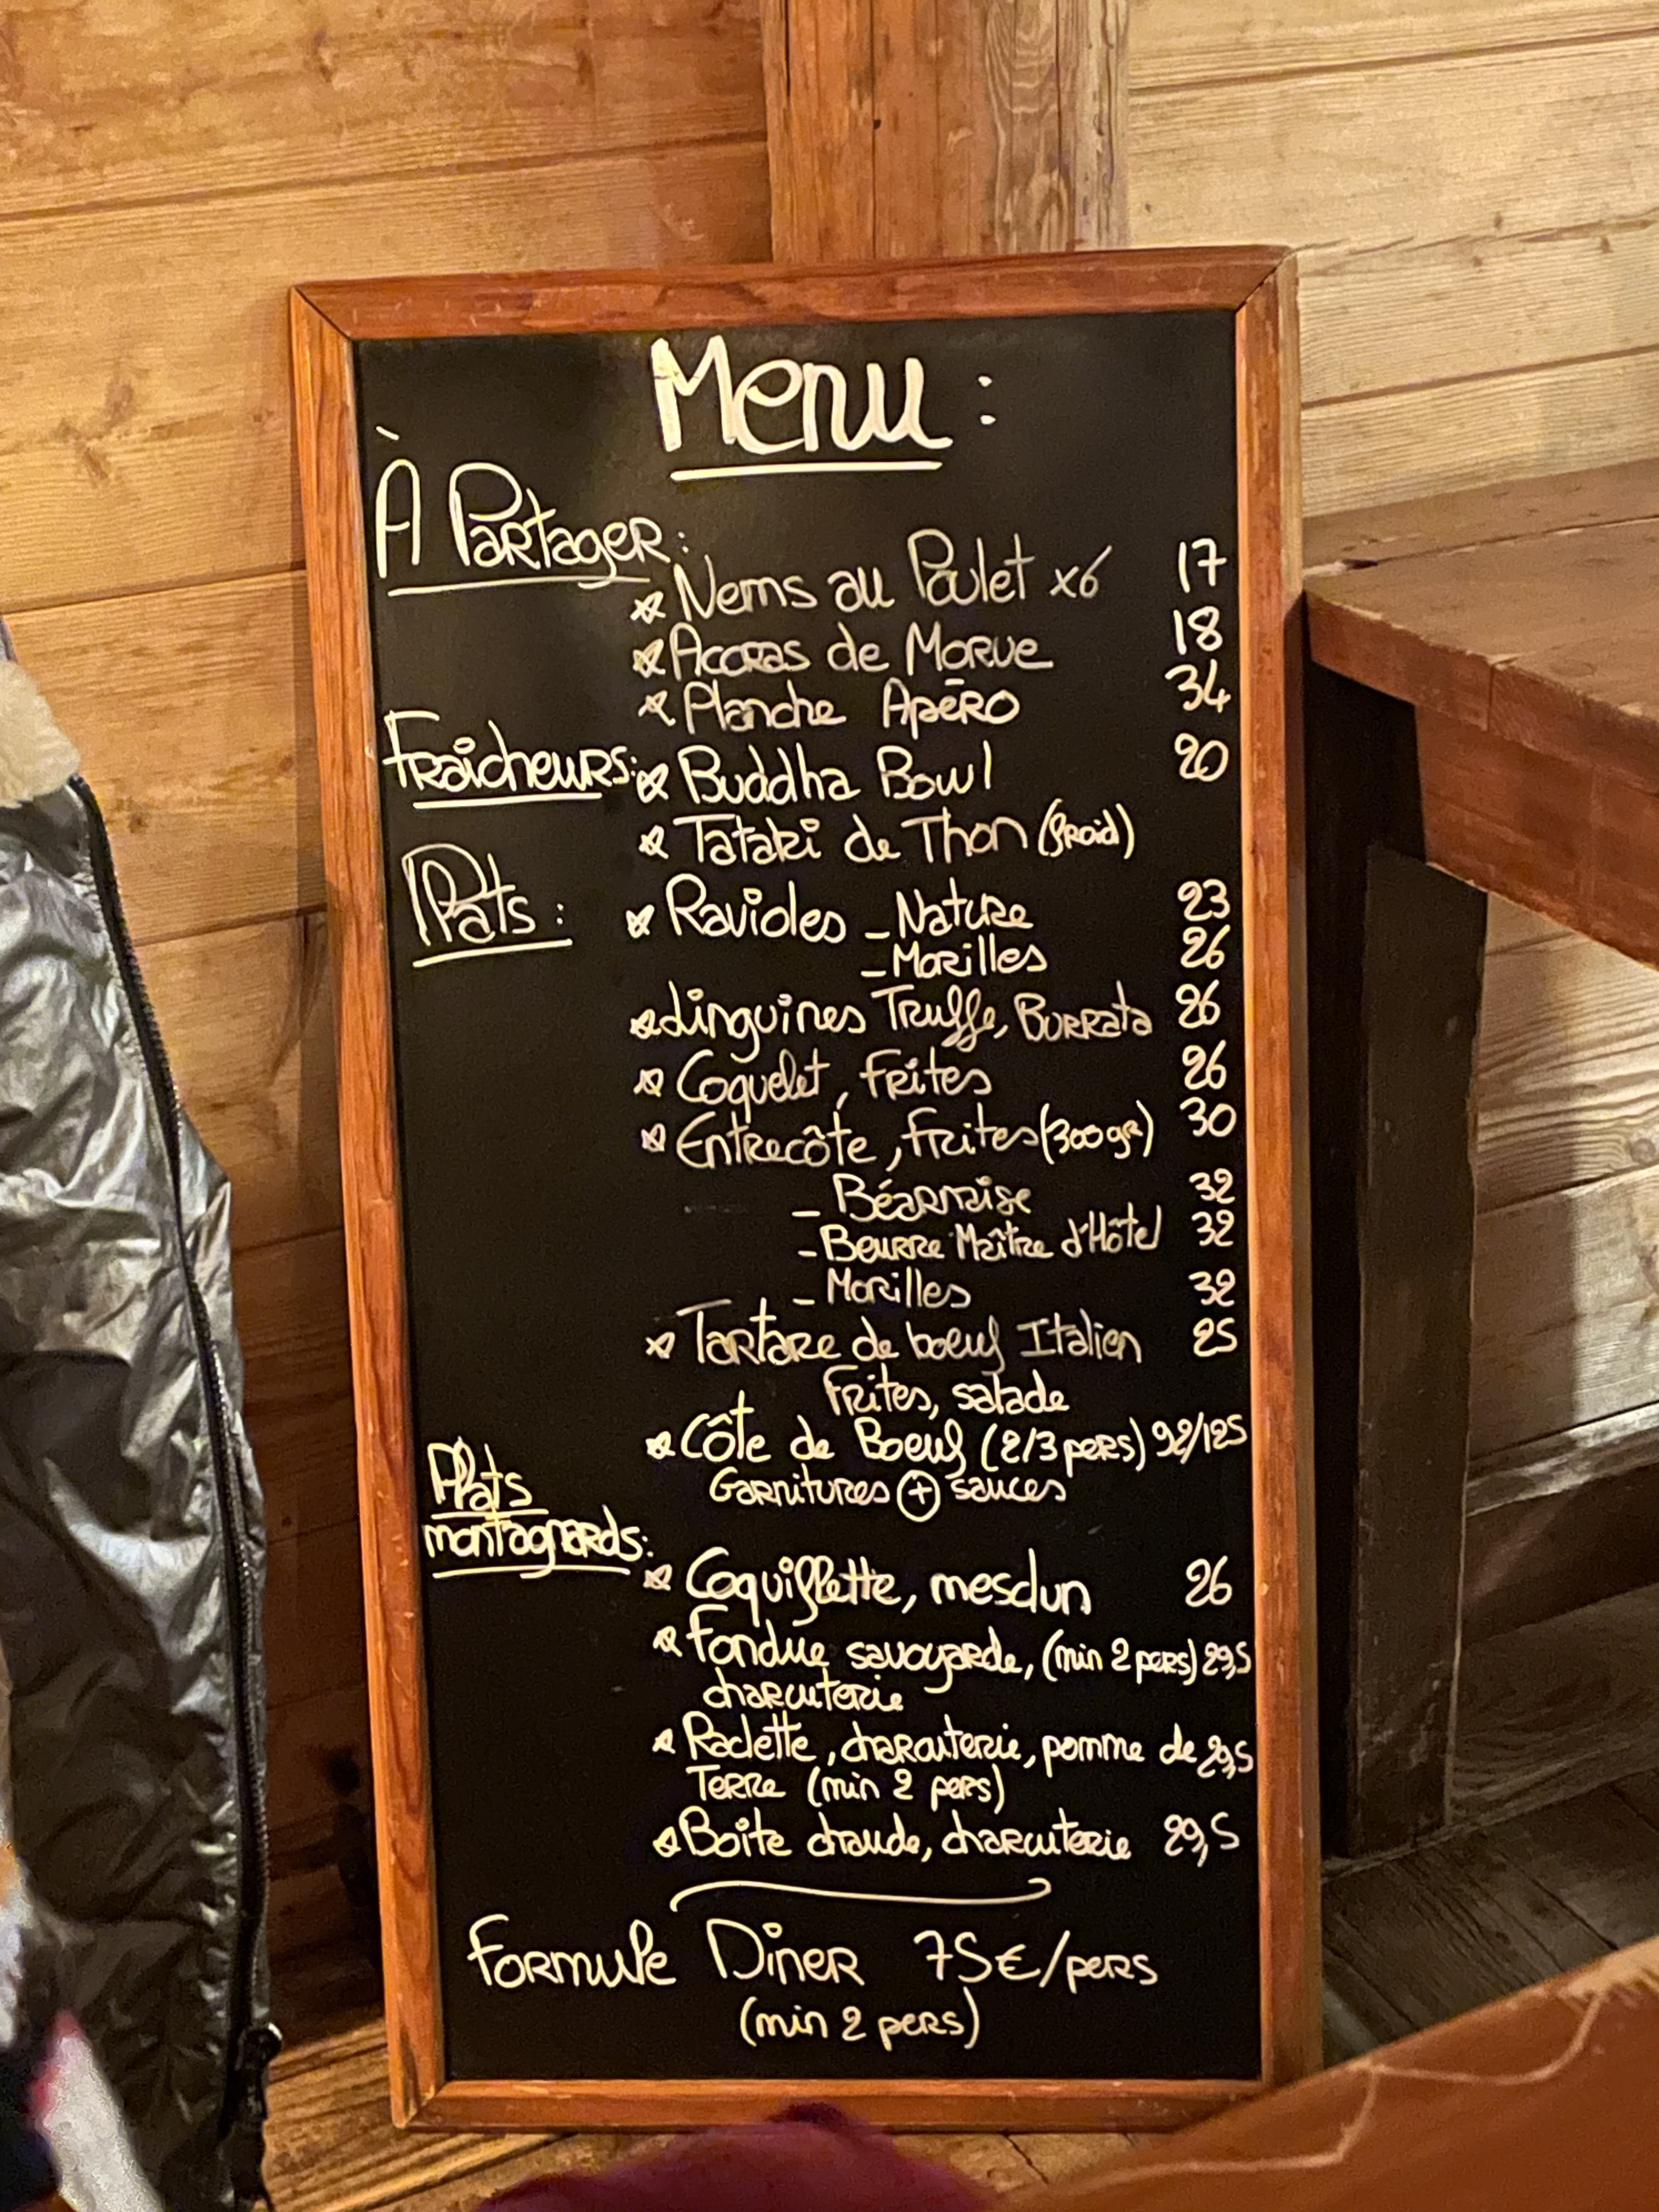 Menu :
À Partager :
☆ Nems au Poulet x6 17
☆ Accras de Morue 18
☆ Planche Apéro 34
Fraîcheurs : ☆ Buddha Bowl 20
☆ Tataki de Thon (froid)
Plats :
☆ Ravioles - Nature 23
- Morilles 26
☆ Linguines Truffe, Burrata 26
☆ Coquelet, Frites 26
☆ Entrecôte, frites (300gr) 30
- Béarnaise 32
- Beurre Maître d'Hôtel 32
- Morilles 32
☆ Tartare de boeuf Italien 25
Frites, salade
☆ Côte de Boeuf (2/3 pers) 92/125
Garnitures + sauces
Plats
montagnards :
☆ Coquiflette, mesclun 26
☆ Fondue savoyarde, (min 2 pers) 29,5
charcuterie
☆ Raclette, charcuterie, pomme de 29,5
Terre (min 2 pers)
☆ Boîte chaude, charcuterie 29,5
Formule Dîner 75€/pers
(min 2 pers)